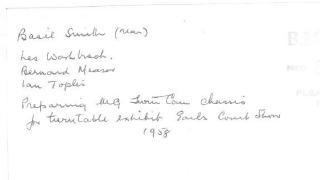 Basil Smith (rear)
Les Warbrach.
Bernard Measor
Ian Toplis
Preparing MG Twin Cam chassis
for turntable exhibit Earls Court Show
1958